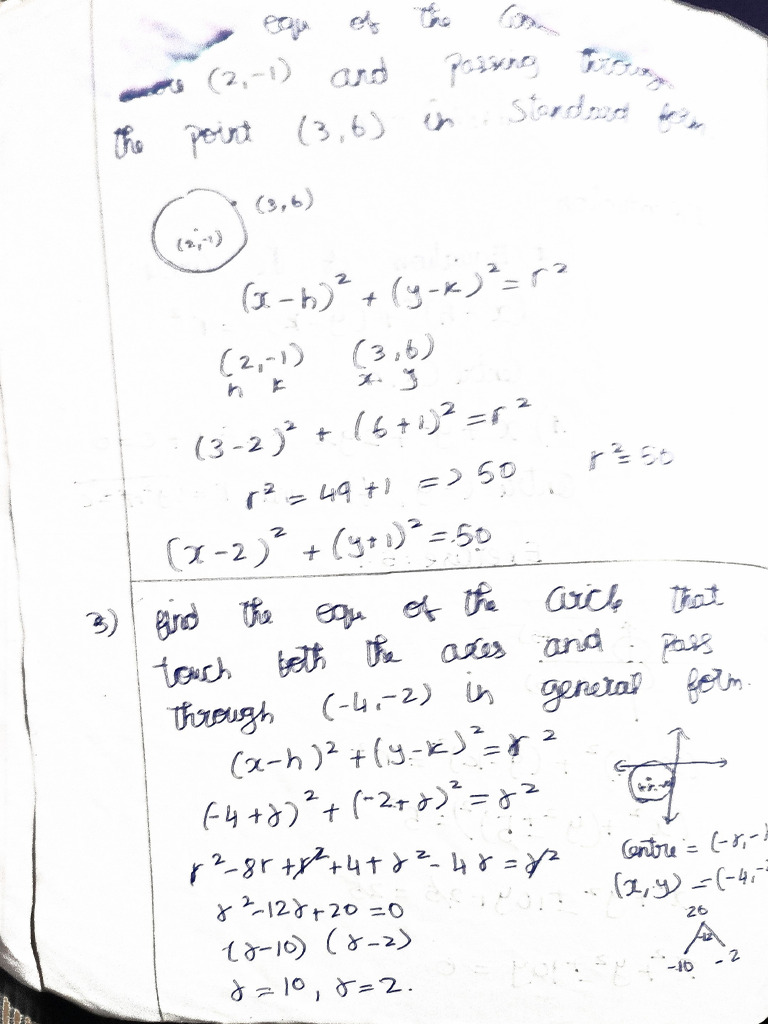 equ of the
(2,-1) and passing through
the point (3,6) in Standard form
(3,6)
(2,-1)
(x-h)² + (y-k)² = r²
(2,-1) (3,6)
h k x y
(3-2)² + (6+1)² = r²
r² = 49+1 => 50 r² = 50
(x-2)² + (y+1)² = 50
3) find the equ of the circle that
touch both the axes and pass
through (-4,-2) in general form.
(x-h)² + (y-k)² = r²
(-4+r)² + (-2+r)² = r²
Centre = (-r,-
r²-8r+r²+4+r²-4r = r²
(x,y) = (-4,-
r²-12r+20=0
20
(r-10) (r-2)
12
-10 -2
r=10, r=2.